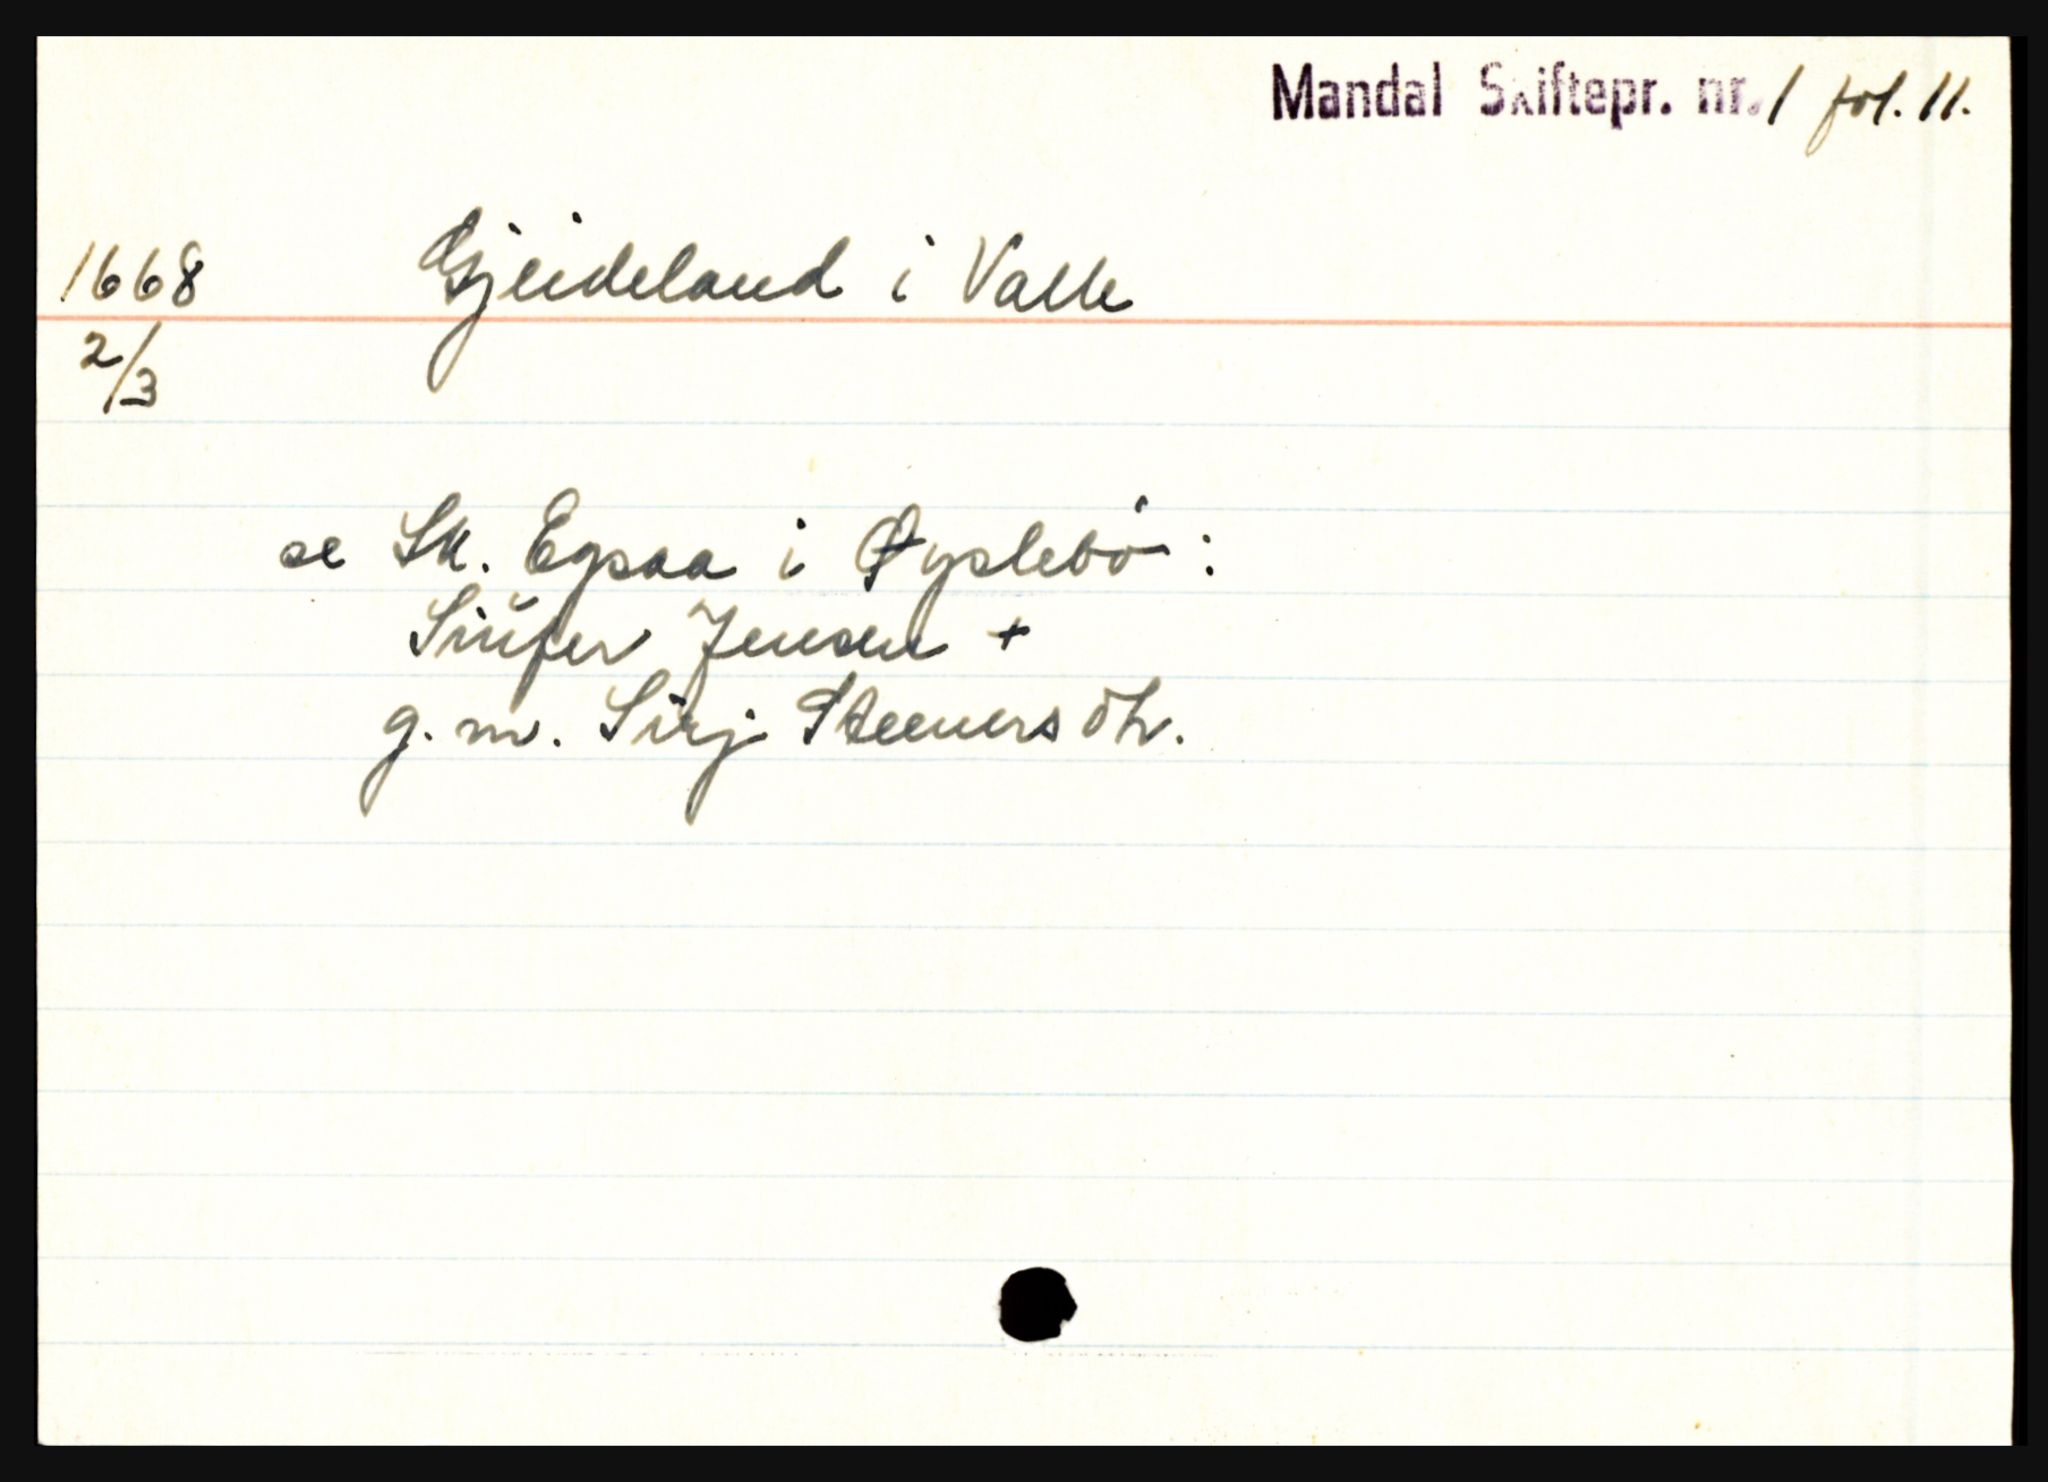 Mandal Skiftepr. nr. 1 fol. 11.
1668 Gjeideland i Valle
2/3
se Sk. Egsaa i Øyslebø:
Siufer Jensen +
g. m. Sirj Steeners dtr.